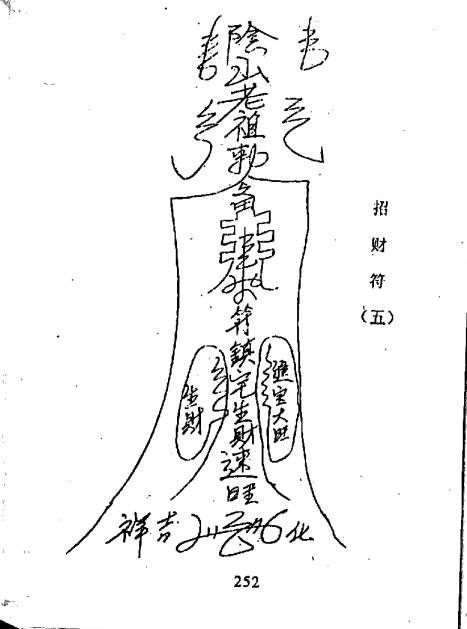 招財符
（五）
陰山老祖勅
符鎮宅生財速旺
生財
進宝大旺
祥吉
化
252